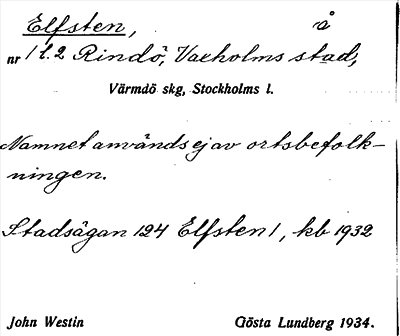 Elfsten, å
nr 1 l. 2 Rindö, Vaxholms stad,
Värmdö skg, Stockholms l.
Namnet användes ej av ortsbefolk-
ningen.
Stadsägan 124 Elfsten 1, kb 1932
John Westin Gösta Lundberg 1934.